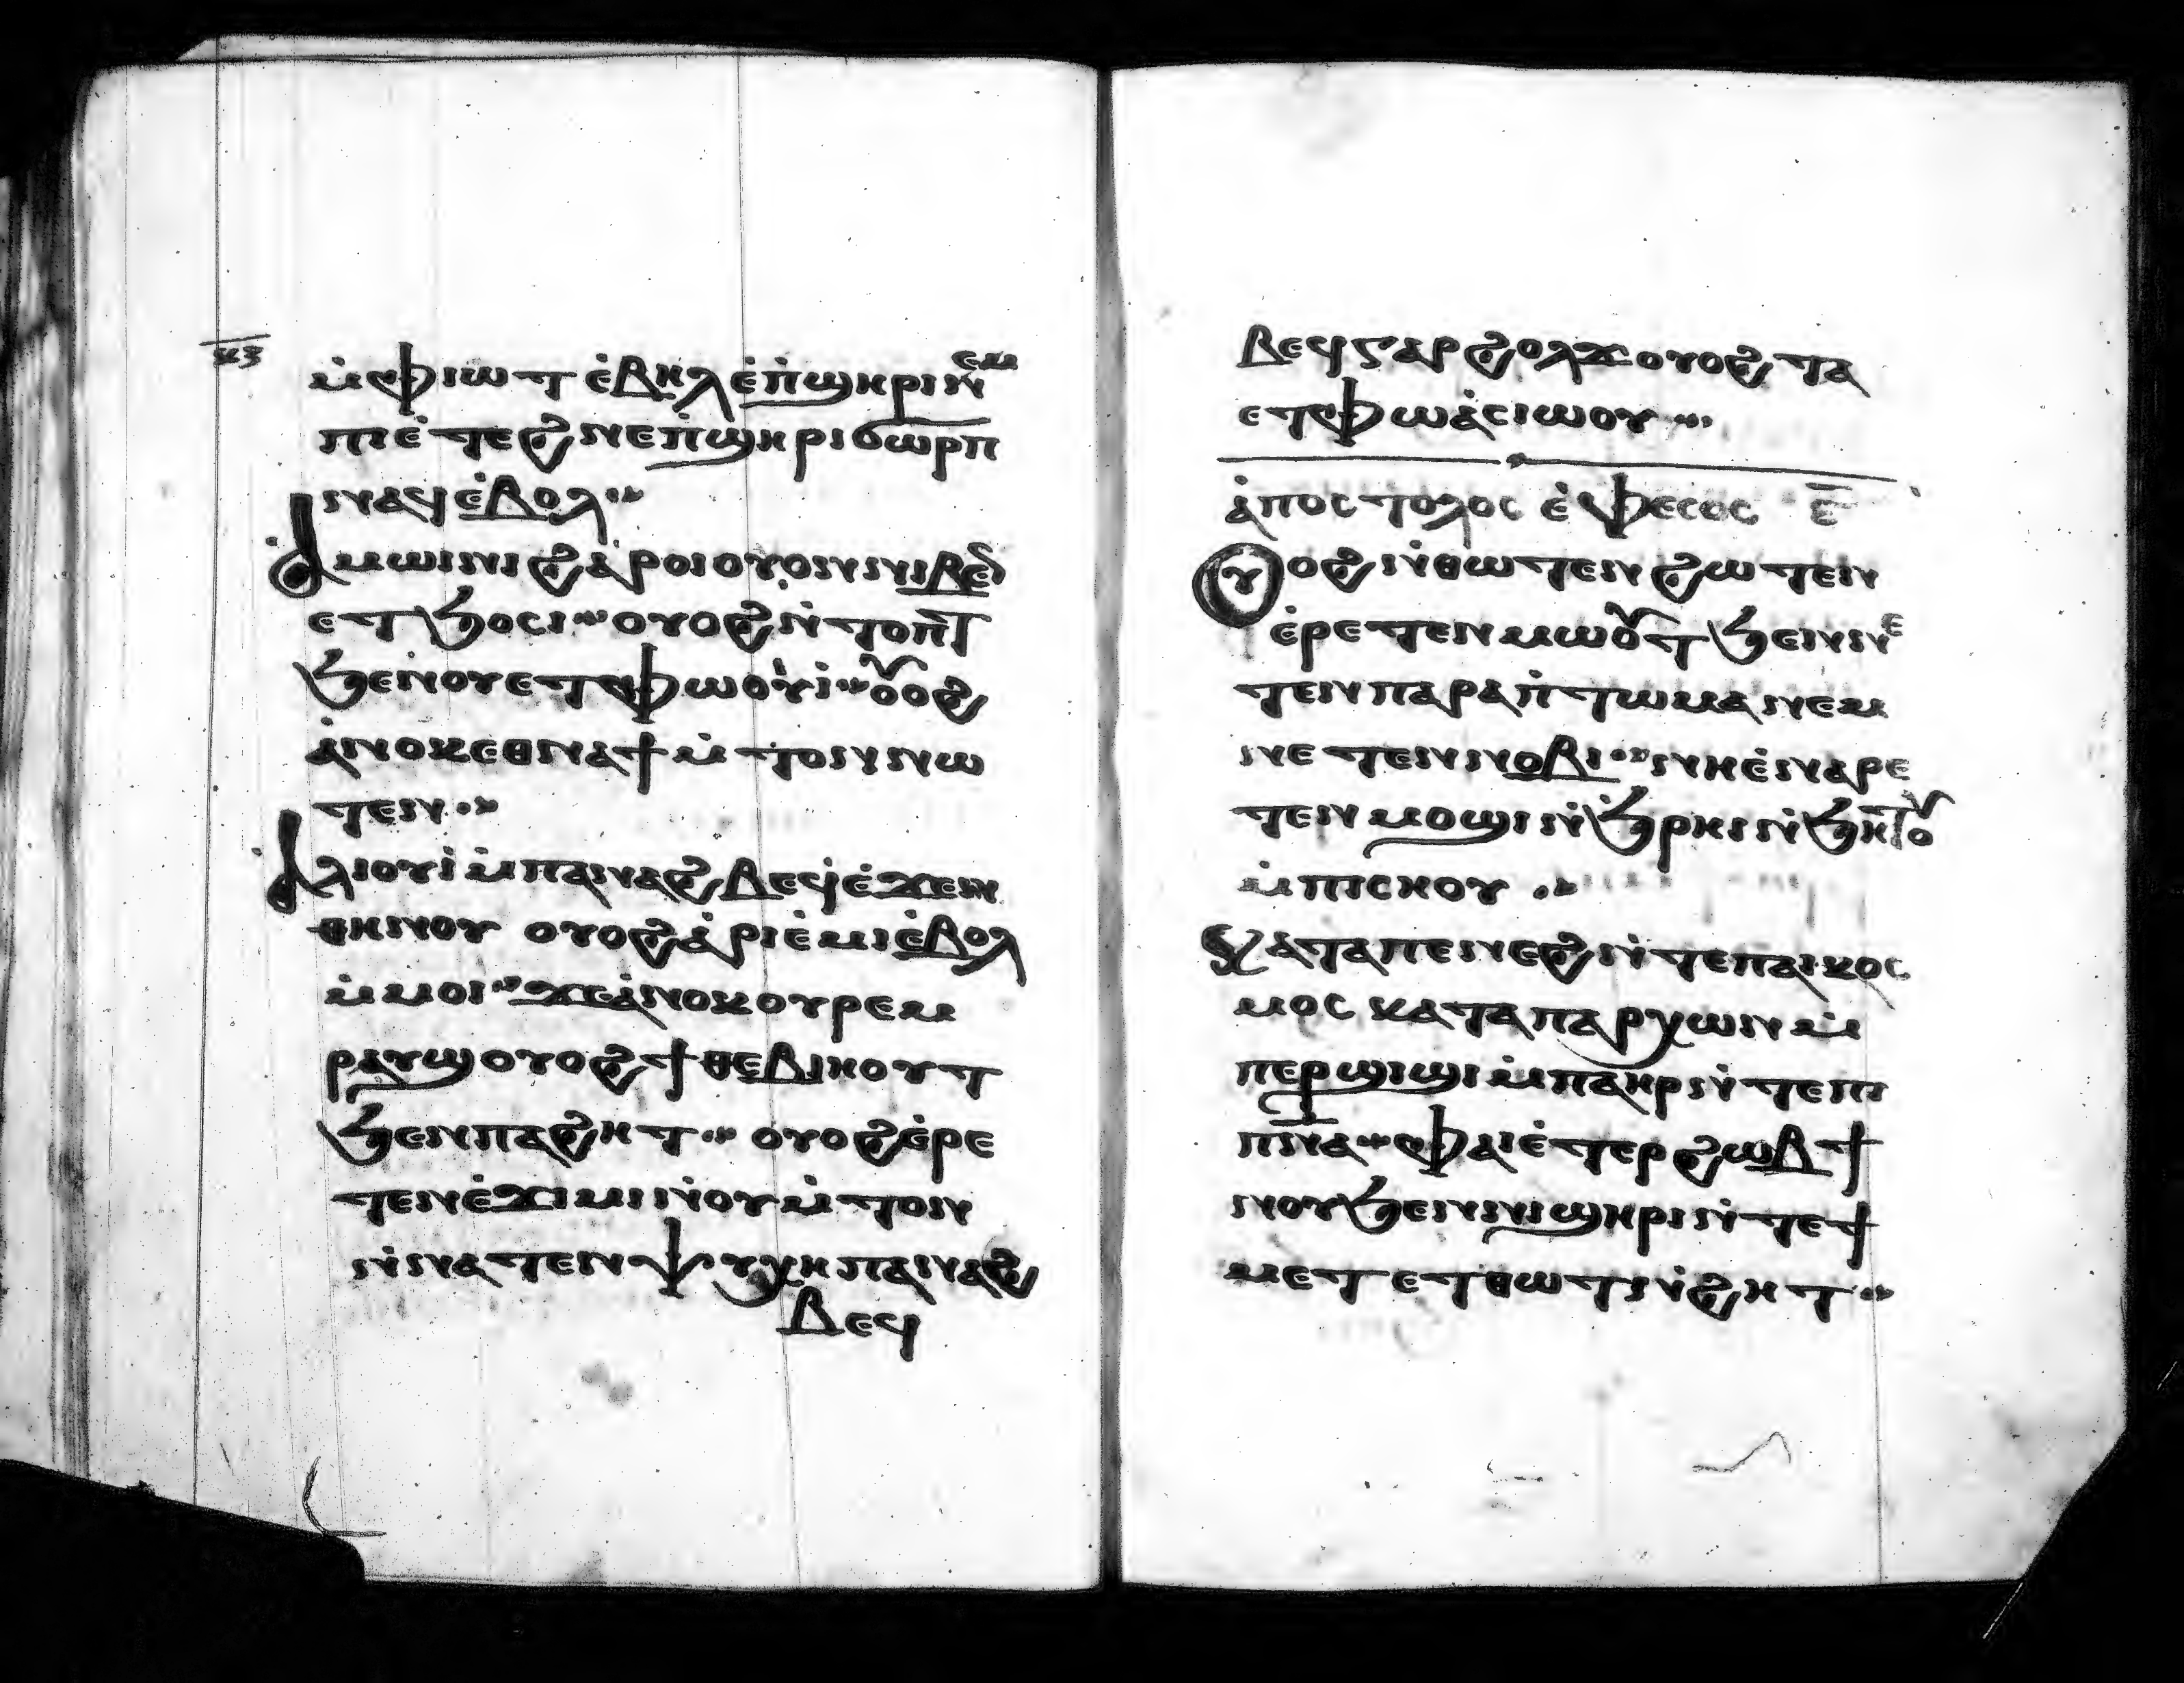 ⲕⲍ
ⲙ̇ⲫⲓⲱⲧ ⲉ̇ⲃⲏⲗ ⲉ̇ⲡ̇ϣⲏⲣⲓ ⲛ̇ⲉⲙ
ⲡⲓⲉ̇ⲧⲉϩⲛⲉ ⲡ̇ϣⲏⲣⲓ ϭⲱⲣⲡ
ⲛⲁϥ ⲉ̇ⲃⲟⲗ
ⲁ̇ⲙⲱⲓⲛⲓ ϩⲁⲣⲟⲓ ⲟⲩⲟⲛ ⲛⲓⲃⲉⲛ
ⲉⲧϧⲟⲥⲓ ⲟⲩⲟϩ ⲛ̇ⲧⲟⲡ̇ⲧ
ϧⲉⲛ ⲛⲟⲩⲉⲧⲫⲱⲟⲩⲓ̇ ⲟⲩⲟϩ
ⲁ̇ⲛⲟⲕ ⲉⲑⲛⲁϯ ⲙ̇ⲧⲟⲛ ⲛⲱ
ⲧⲉⲛ
ⲁ̇ⲗⲓⲟⲩⲓ̇ ⲙ̇ⲡⲁⲛⲁϩⲃⲉϥ ⲉ̇ϫⲉⲛ
ⲑⲏⲛⲟⲩ ⲟⲩⲟϩ ⲁ̇ⲣⲓⲉ̇ⲙⲓ ⲉ̇ⲃⲟⲗ
ⲙ̇ⲙⲟⲓ ϫⲉ ⲁ̇ⲛⲟⲕ ⲟⲩⲣⲉⲙ
ⲣⲁⲩϣ ⲟⲩⲟϩ ϯⲑⲉⲃⲓⲏⲟⲩⲧ
ϧⲉⲛ ⲡⲁϩⲏⲧ ⲟⲩⲟϩ ⲉ̇ⲣⲉ
ⲧⲉⲛⲉ̇ϫⲓⲙⲓ ⲛ̇ⲟⲩⲙ̇ⲧⲟⲛ
ⲛ̇ⲛⲁⲧⲉⲛⲯⲩⲭⲏ ⲡⲁⲛⲁϩ
ⲃⲉϥ
ⲃⲉϥ ⲅⲁⲣ ϩⲟⲗϫ ⲟⲩⲟϩ ⲧⲁ
ⲉⲧⲫⲱ ⲁ̇ⲥⲓⲱⲟⲩ
ⲁ̇ⲡⲟⲥⲧⲟⲗⲟⲥ ⲉ̇ⲫⲉⲥⲟⲥ ⲉ̅
ⲟⲩⲟϩ ⲛ̇ⲑⲱⲧⲉⲛ ϩⲱⲧⲉⲛ
ⲉ̇ⲣⲉⲧⲉⲛⲙⲱⲟⲩⲧ ϧⲉⲛ ⲛⲉ
ⲧⲉⲛⲡⲁⲣⲁⲡ̇ⲧⲱⲙⲁ ⲛⲉⲙ
ⲛⲉⲧⲉⲛⲛⲟⲃⲓ ⲛⲏ ⲉ̇ⲛⲁⲣⲉ
ⲧⲉⲛⲙⲟϣⲓ ⲛ̇ϧⲣⲏⲓ ⲛ̇ϧⲏⲧⲟⲩ
ⲙ̇ⲡⲓⲥⲏⲟⲩ
ⲕⲁⲧⲁ ⲡⲉⲛⲉϩ ⲛ̇ⲧⲉ ⲡⲁⲓⲕⲟⲥ
ⲙⲟⲥ ⲕⲁⲧⲁ ⲡⲁⲣⲭⲱⲛ ⲙ̇
ⲡⲉⲣϣⲓϣⲓ ⲙ̇ⲡⲁⲏⲣ ⲛ̇ⲧⲉ ⲡⲓ
ⲡⲛ̅ⲁ ⲫⲁⲓ ⲉ̇ⲧⲉⲣϩⲱⲃ ϯ
ⲛⲟⲩ ϧⲉⲛ ⲛⲓϣⲏⲣⲓ ⲛ̇ⲧⲉ ϯ
ⲙⲉⲧⲉⲧⲑⲱⲧ ⲛ̇ϩⲏⲧ